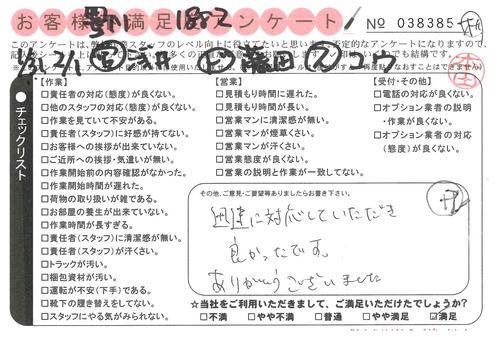 お客様満足アンケート! No 038385
1882
【作業】
□責任者の対応(態度)が良くない。
□他のスタッフの対応(態度)が良くない。
□作業を見ていて不安がある。
□責任者(スタッフ)に好感が持てない。
□お客様への挨拶が出来ていない。
□ご近所への挨拶・気遣いが無い。
□作業開始前の内容確認がなかった。
□作業開始時間が遅れた。
□荷物の取り扱いが雑である。
□お部屋の養生が出来ていない。
□作業時間が長すぎる。
□責任者(スタッフ)に清潔感が無い。
□責任者(スタッフ)が汗くさい。
□トラックが汚い。
□梱包資材が汚い。
□運転が不安(下手)である。
□靴下の履き替えをしてない。
□スタッフにやる気がみられない。
チェックリスト
【営業】
□見積もり時間に遅れた。
□見積もり時間が長い。
□営業マンに清潔感が無い。
□営業マンが煙草くさい。
□営業マンが汗くさい。
□営業態度が良くない。
□営業の説明と作業が一致してない。
【受付・その他】
□電話の対応が良くない。
□オプション業者の説明
・作業が良くない。
□オプション業者の対応
(態度)が良くない。
その他、ご意見・ご要望等ありましたらお書き下さい。
迅速に対応していただき
良かったです。
ありがとうございました
☆当社をご利用いただきまして、ご満足いただけてしょうか?
□不満 □やや不満 □普通 □やや満足 ☑満足